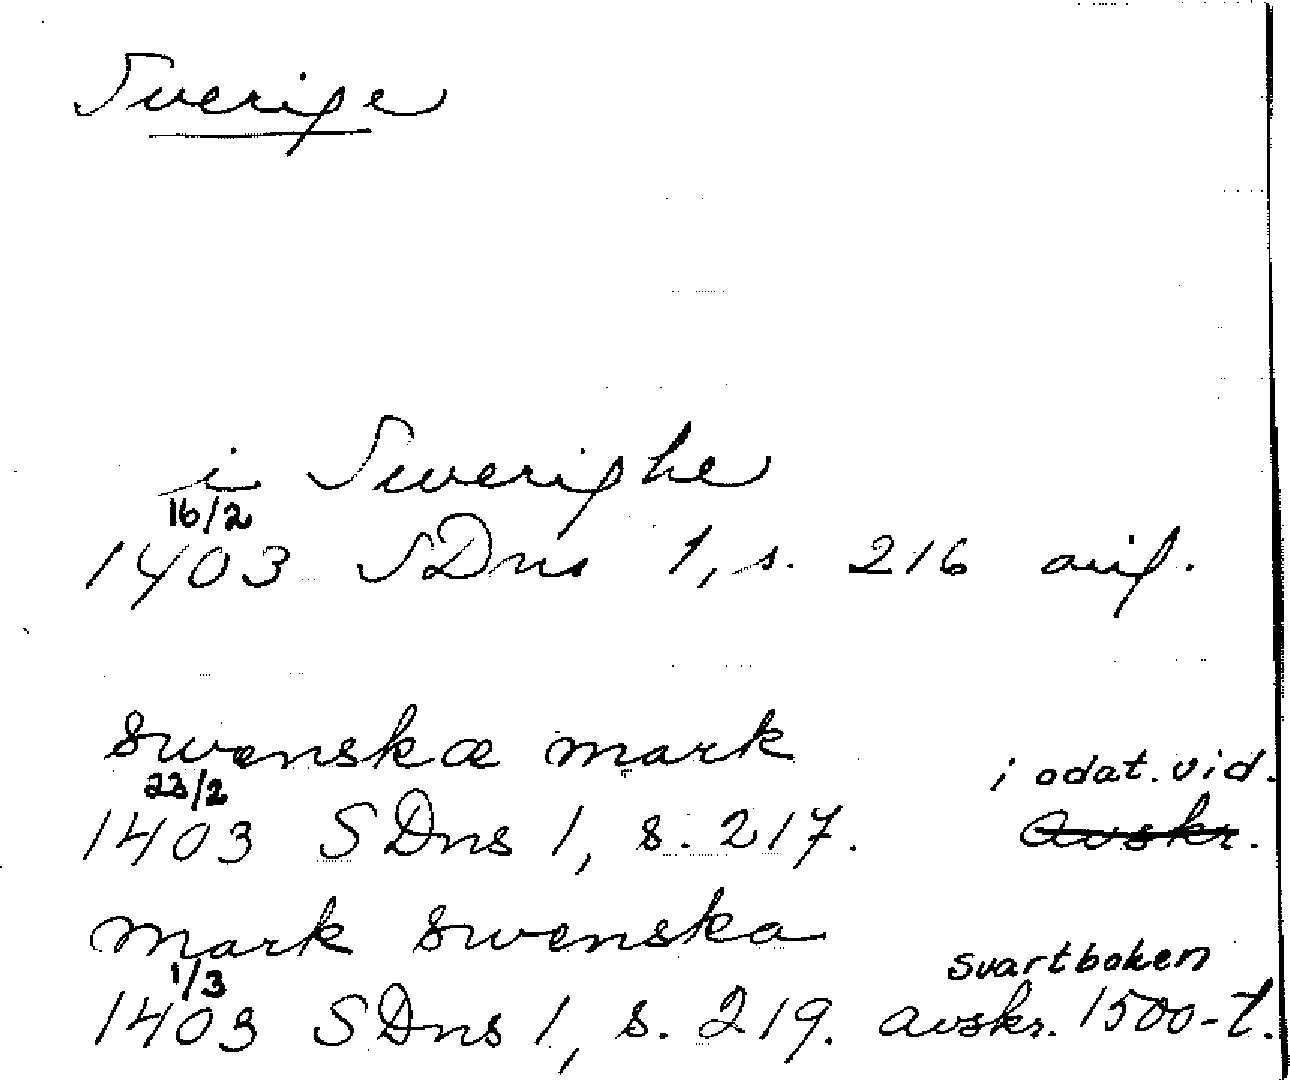 Sverige
i Swerighe
16/2
1403 SDns 1, s. 216 orig.
swenskæ mark
23/2 i odat. vid.
1403 SDns 1, s. 217. avskr.
mark swenska
1/3 svartboken
1403 SDns 1, s. 219. avskr. 1500-t.